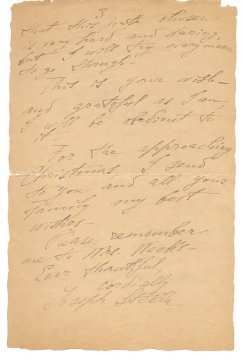 3
that this path chosen
is very hard and daring
but I will try every means
to go through!
This is your wish—
and grateful as I am,
I will be obedient to
it—
For the approaching
Christmas, I send
to you and all your
family my best
wishes—
Please remember
me to Mrs.
Ever thankful
cordially
Joseph Stella